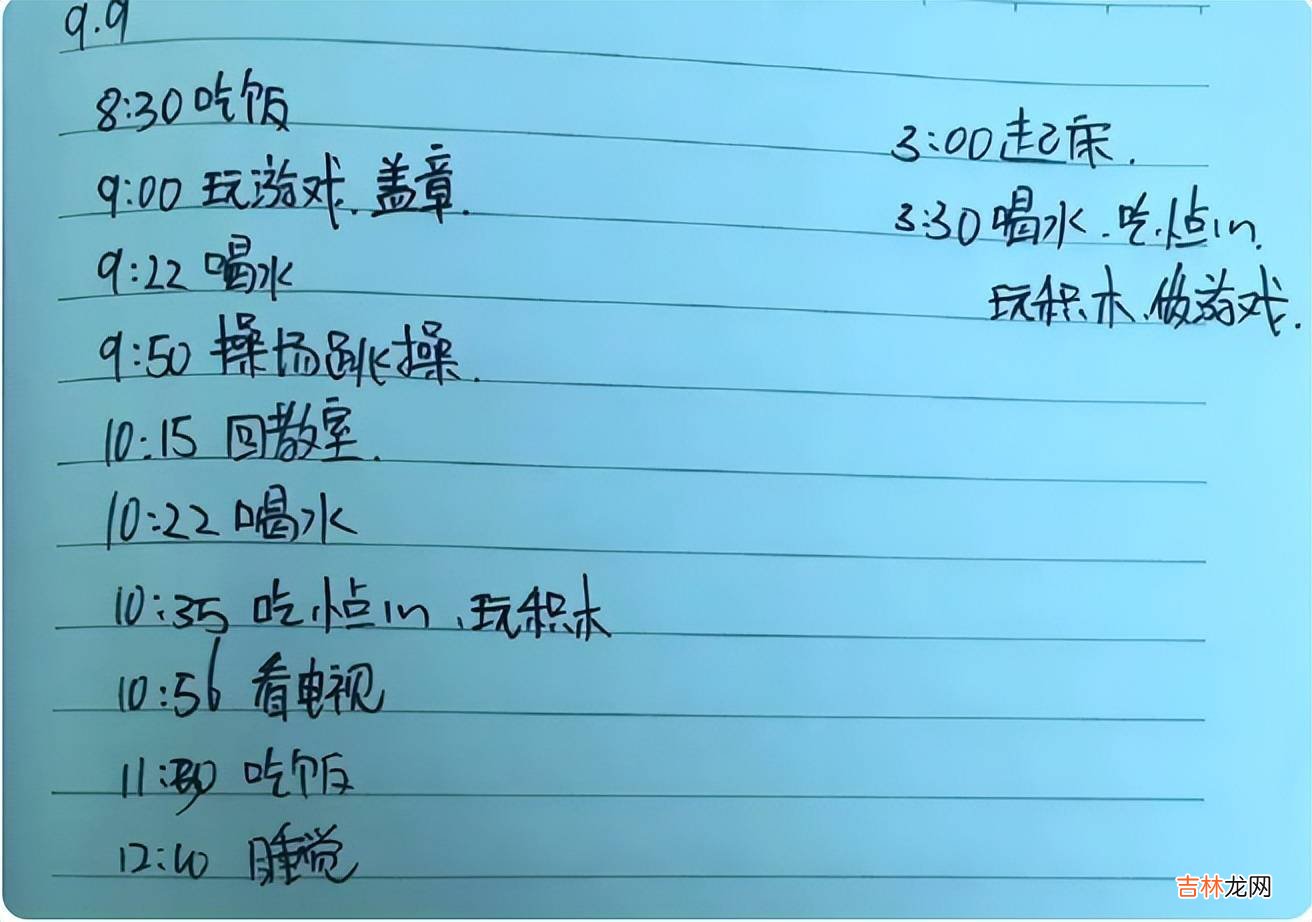 9.9
8:30 吃饭
9:00 玩游戏、盖章.
9:22 喝水
9:50 操场跳操.
10:15 回教室.
10:22 喝水
10:35 吃小点in、玩积木
10:56 看电视
11:30 吃饭
12:10 睡觉
3:00 起床.
3:30 喝水、吃小点in.
玩积木、做游戏.
吉林龙网